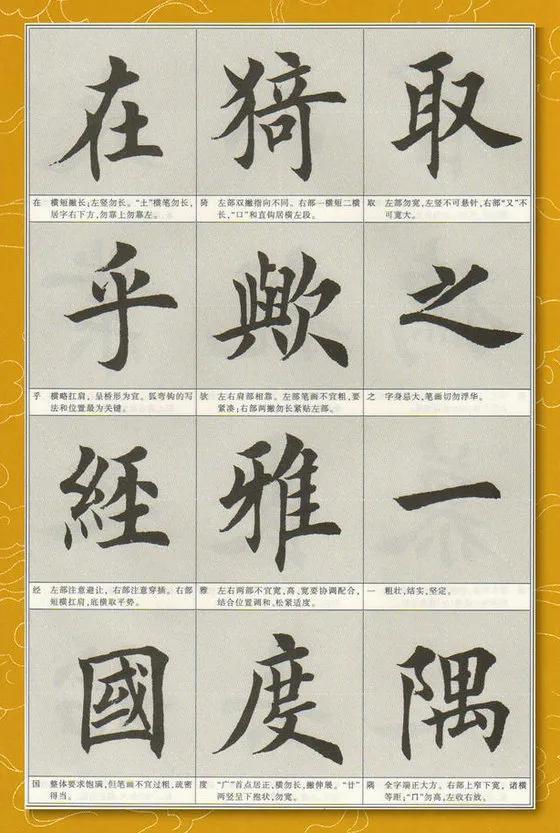 取
取 左部勿宽,左竖不可悬针,右部“又”不
可宽大。
之
之 字身忌大,笔画切勿浮华。
一
一 粗壮,结实,坚定。
隅
隅 全字端正大方。右部上窄下宽,诸横
等距;“冂”勿高,左收右放。
猗
猗 左部双撇指向不同。右部一横短二横
长,“口”和直钩居横左段。
歟
欤 左右肩部相靠。左部笔画不宜粗,要
紧凑;右部两撇勿长紧贴左部。
雅
雅 左右两部不宜宽,高、宽要协调配合,
结合位置调和、松紧适度。
度
度 “广”首点居正,横勿长,撇伸展。“廿”
两竖呈下抱状,勿宽。
在
在 横短撇长;左竖勿长。“土”横笔勿长,
居字右下方,勿靠上勿靠左。
乎
乎 横略扛肩，呈桥形为宜。弧弯钩的写
法和位置最为关键。
經
经 左部注意避让，右部注意穿插。右部
短横扛肩,底横取平势。
國
国 整体要求饱满,但笔画不宜过粗,疏密
得当。